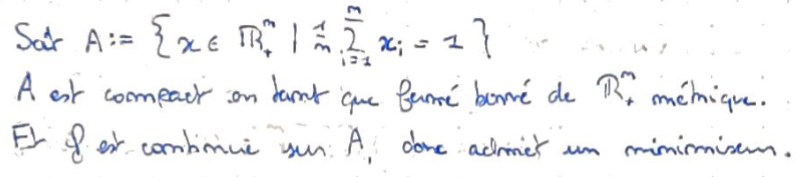 Soit A := { x ∈ ℝ₊ⁿ | 1/n ∑ᵢ₌₁ⁿ xᵢ = 1 }
A est compact en tant que fermé borné de ℝ₊ⁿ métrique.
Et f est continue sur A, donc admet un minimiseur.